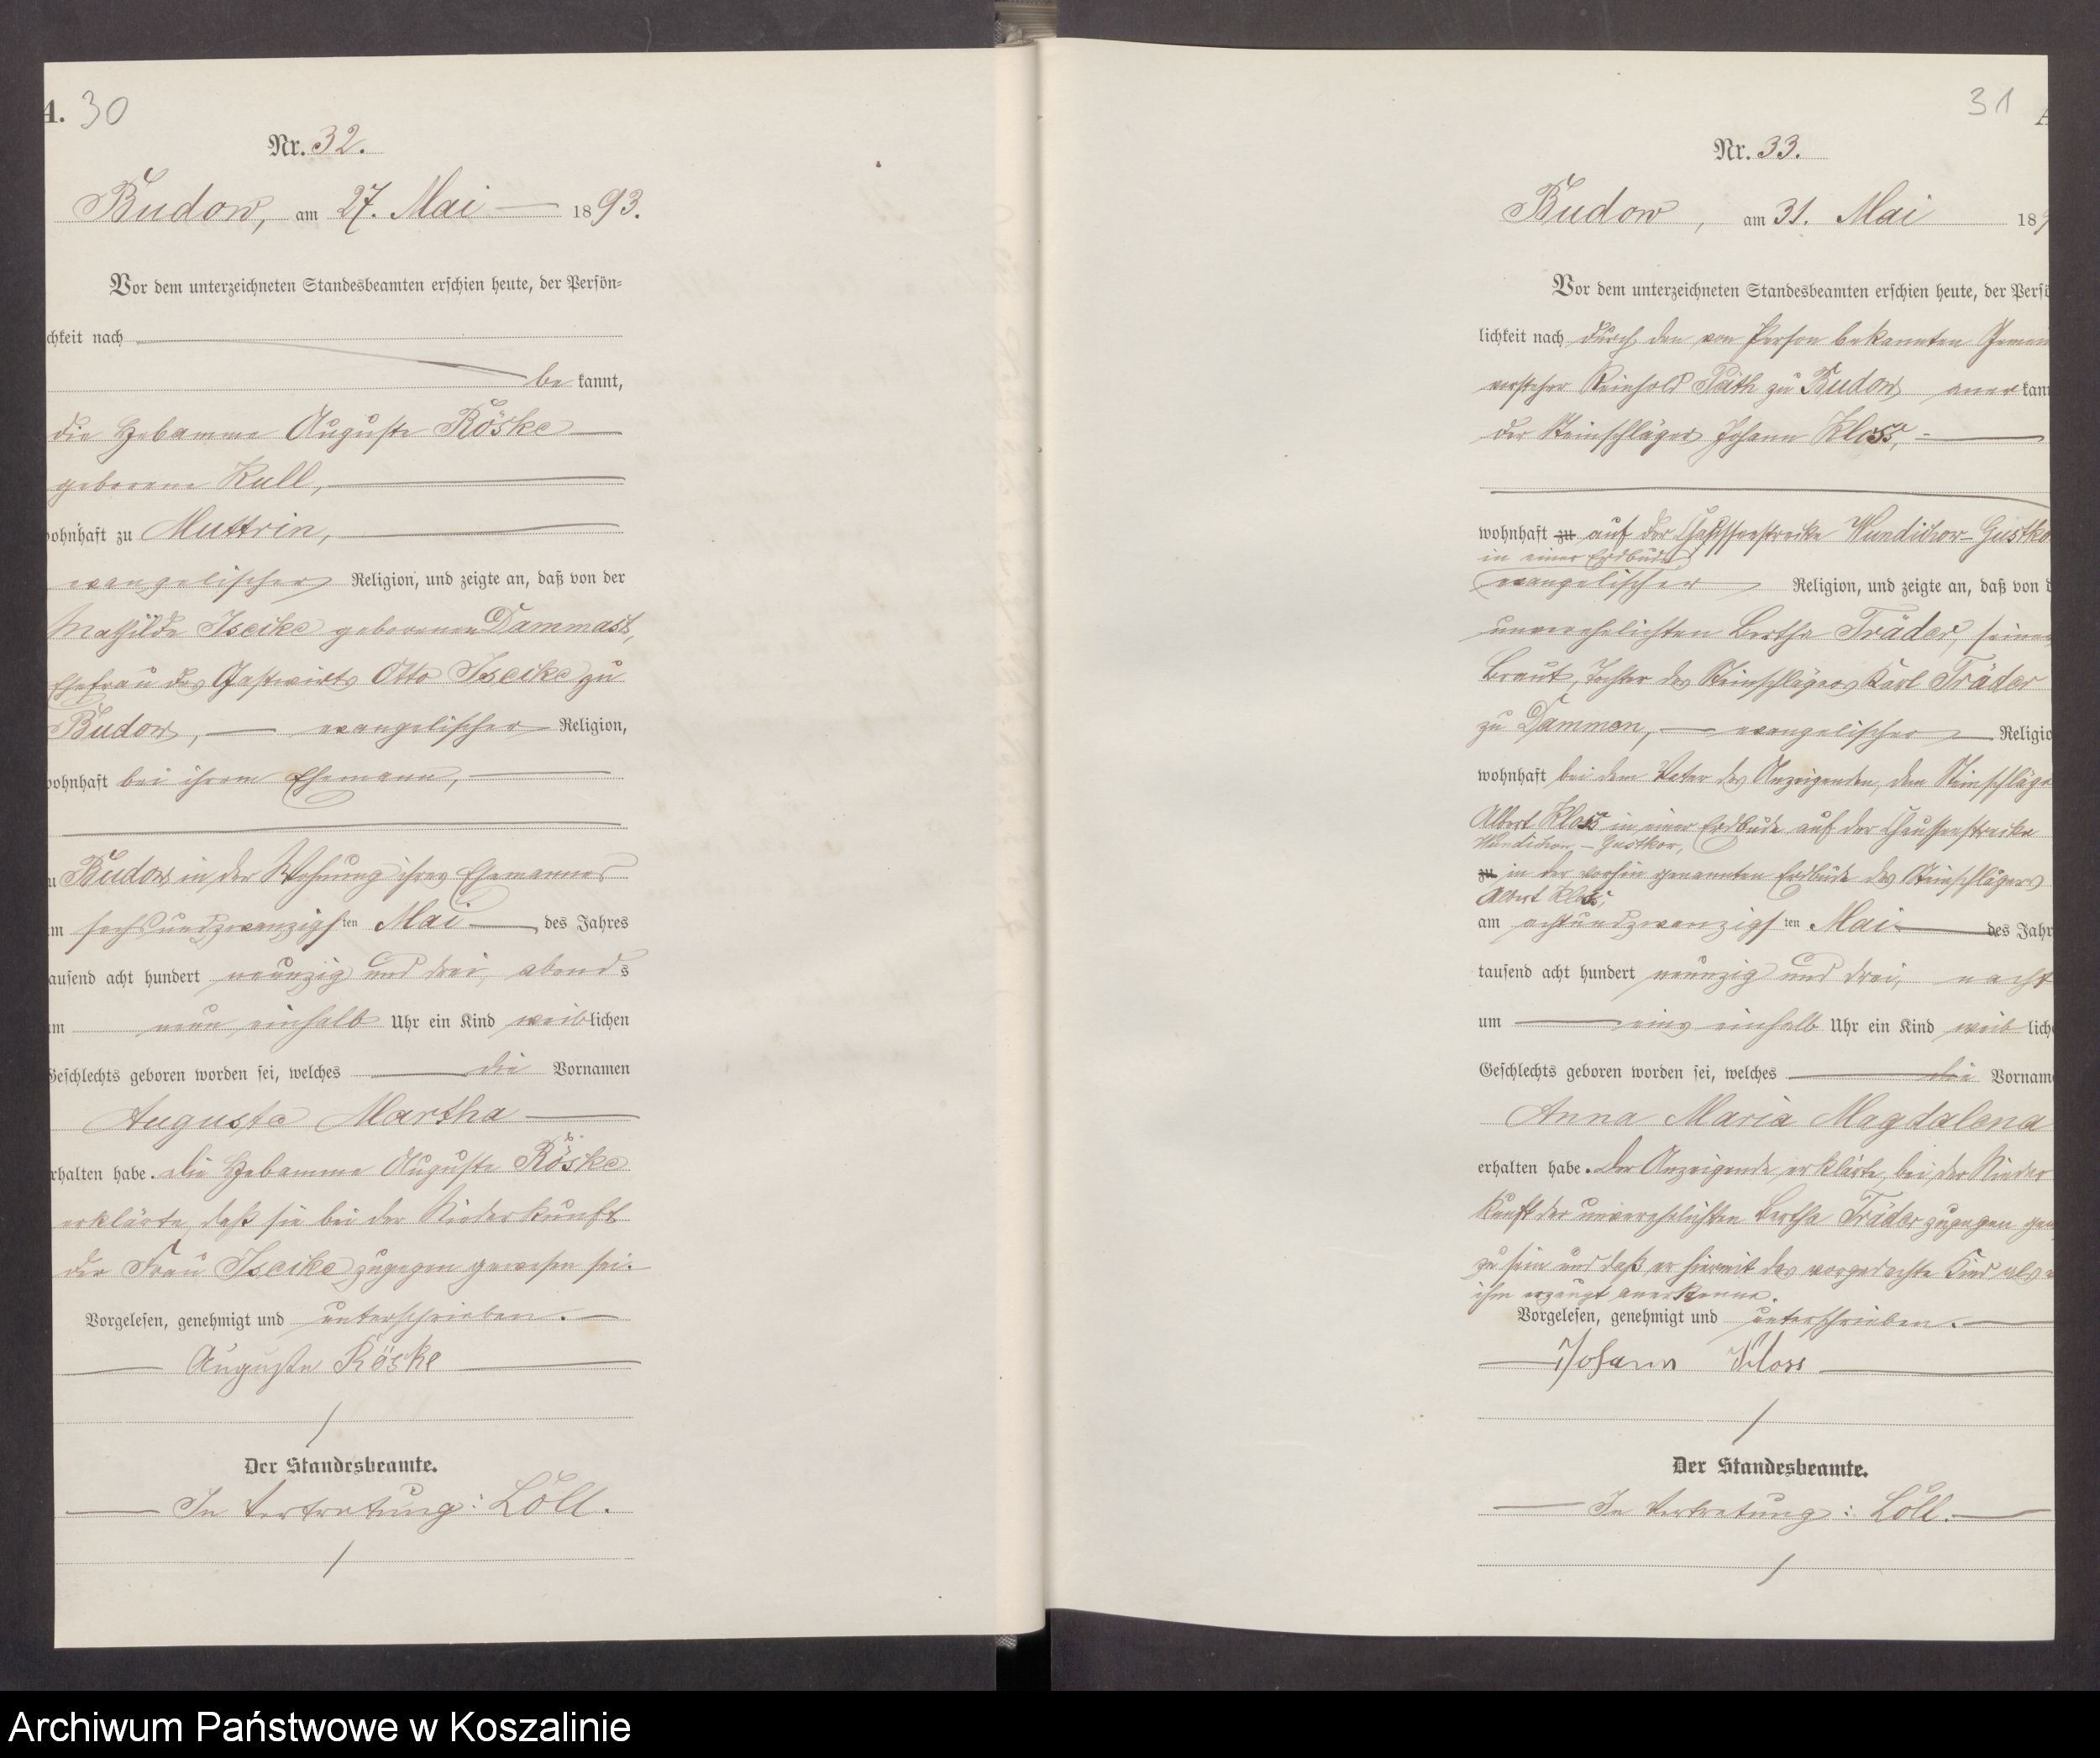 A. 30
Nr. 32.
Budow, am 27. Mai 1893.
Vor dem unterzeichneten Standesbeamten erschien heute, der Persön-
chkeit nach
be kannt,
die Hebamme Auguste Röske
geborene Kull,
wohnhaft zu Muttrin,
evangelischer Religion, und zeigte an, daß von der
Mathilde Iseike geborenen Dammast,
Ehefrau des Gastwirts Otto Iseike zu
Budow, evangelischer Religion,
wohnhaft bei ihrem Ehemann,
u Budow in der Wohnung ihres Ehemannes
m sechsundzwanzigsten Mai des Jahres
ausend acht hundert neunzig und drei, abends
m neun einhalb Uhr ein Kind weiblichen
Geschlechts geboren worden sei, welches die Vornamen
Auguste Martha
rhalten habe. Die Hebamme Auguste Röske
erklärte, daß sie bei der Niederkunft
der Frau Iseike zugegen gewesen sei.
Vorgelesen, genehmigt und unterschrieben.
Auguste Röske
Der Standesbeamte.
In Vertretung: Löll.
31
Nr. 33.
Budow, am 31. Mai 189
Vor dem unterzeichneten Standesbeamten erschien heute, der Persö
lichkeit nach durch den von Person bekannten Gemein
vorsteher Reinhold Päth zu Budow aner kan
der Steinschläger Johann Kloss,
wohnhaft zu auf der Chausseestrecke Wundichow-Gustko
in einer Erdbude
evangelischer Religion, und zeigte an, daß von d
unverehelichten Bertha Träder, seiner
Braut, Tochter des Steinschlägers Karl Träder
zu Dammen, evangelischer Religio
wohnhaft bei dem Vater des Anzeigenden, dem Steinschläge
Albert Kloss in einer Erdbude auf der Chausseestrecke
Wundichow - Gustkow,
zu in der vorhin genannten Erdbude des Steinschlägers
Albert Kloss,
am achtundzwanzigsten Mai des Jahr
tausend acht hundert neunzig und drei, nacht
um eins einhalb Uhr ein Kind weib lich
Geschlechts geboren worden sei, welches die Vornam
Anna Maria Magdalena
erhalten habe. Der Anzeigende erklärte, bei der Nieder
kunft der unverehelichten Bertha Träder zugegen gew
zu sein und daß er hiermit das vorgedachte Kind als v
ihm erzeugt anerkenne.
Vorgelesen, genehmigt und unterschrieben.
Johann Kloss
Der Standesbeamte.
In Vertretung: Löll.
Archiwum Państwowe w Koszalinie